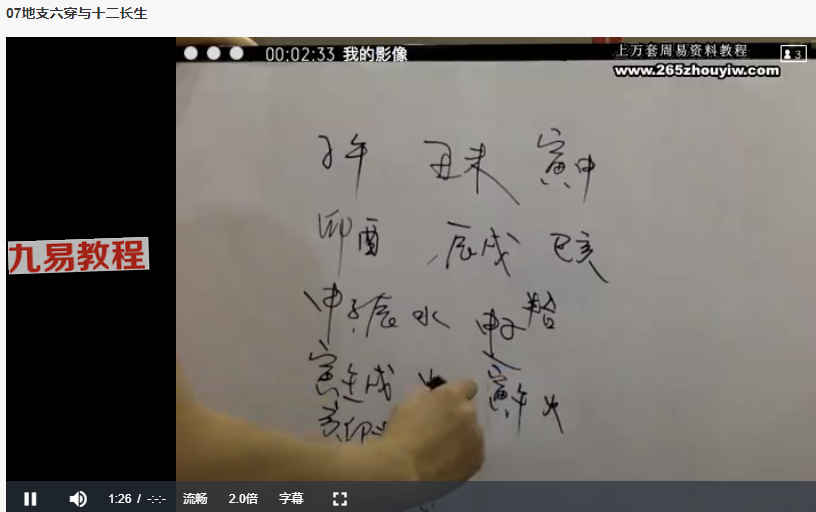 07地支六穿与十二长生
00:02:33 我的影像
上万套周易资料教程
3
www.265zhouyiw.com
子午 丑未 寅申
卯酉 辰戌 巳亥
九易教程
申子辰 水 申子 半合
寅午戌 火 寅午 火
亥卯
1:26 / -:-:- 流畅 2.0倍 字幕